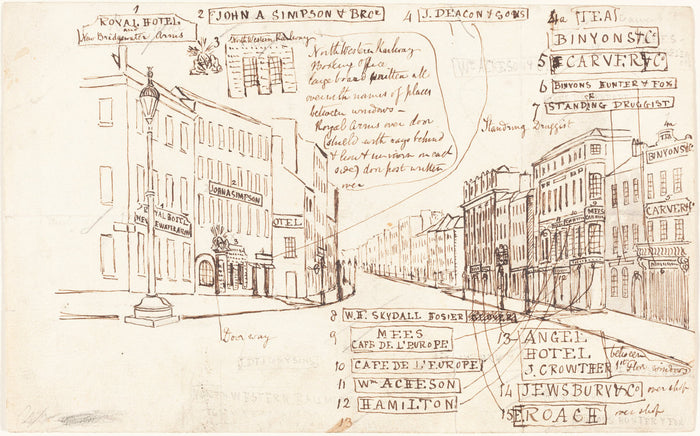 1
ROYAL HOTEL
and
New Bridgewater Arms
2 JOHN A SIMPSON & BROS
3
North Western Railway
4 J. DEACON & SONS
4a TEA
BINYONS & Co
5 CARVER & Co
6 BINYONS HUNTER & FOX
OR
7 STANDING DRUGGIST
Standring Druggist
North Western Railway
Booking office
large board written all
over with names of places
between windows —
Royal Arms over door
shield with rays behind
& lion & unicorn on each
side) door post written
over
2
JOHN A SIMPSON
ROYAL HOTEL
NEW
HOTEL
MEES
4a
TEA
BINYONS
CARVER
Door way
8 W. H. SKYDALL HOSIER
9 MEES
CAFE DE L'EUROPE
10 CAFE DE L'EUROPE
11 Wm ACHESON
12 HAMILTON
13
13 ANGEL
HOTEL
J. CROWTHER
between
1st floor windows
14 JEWSBURY & Co over shop
15 ROACH over shop